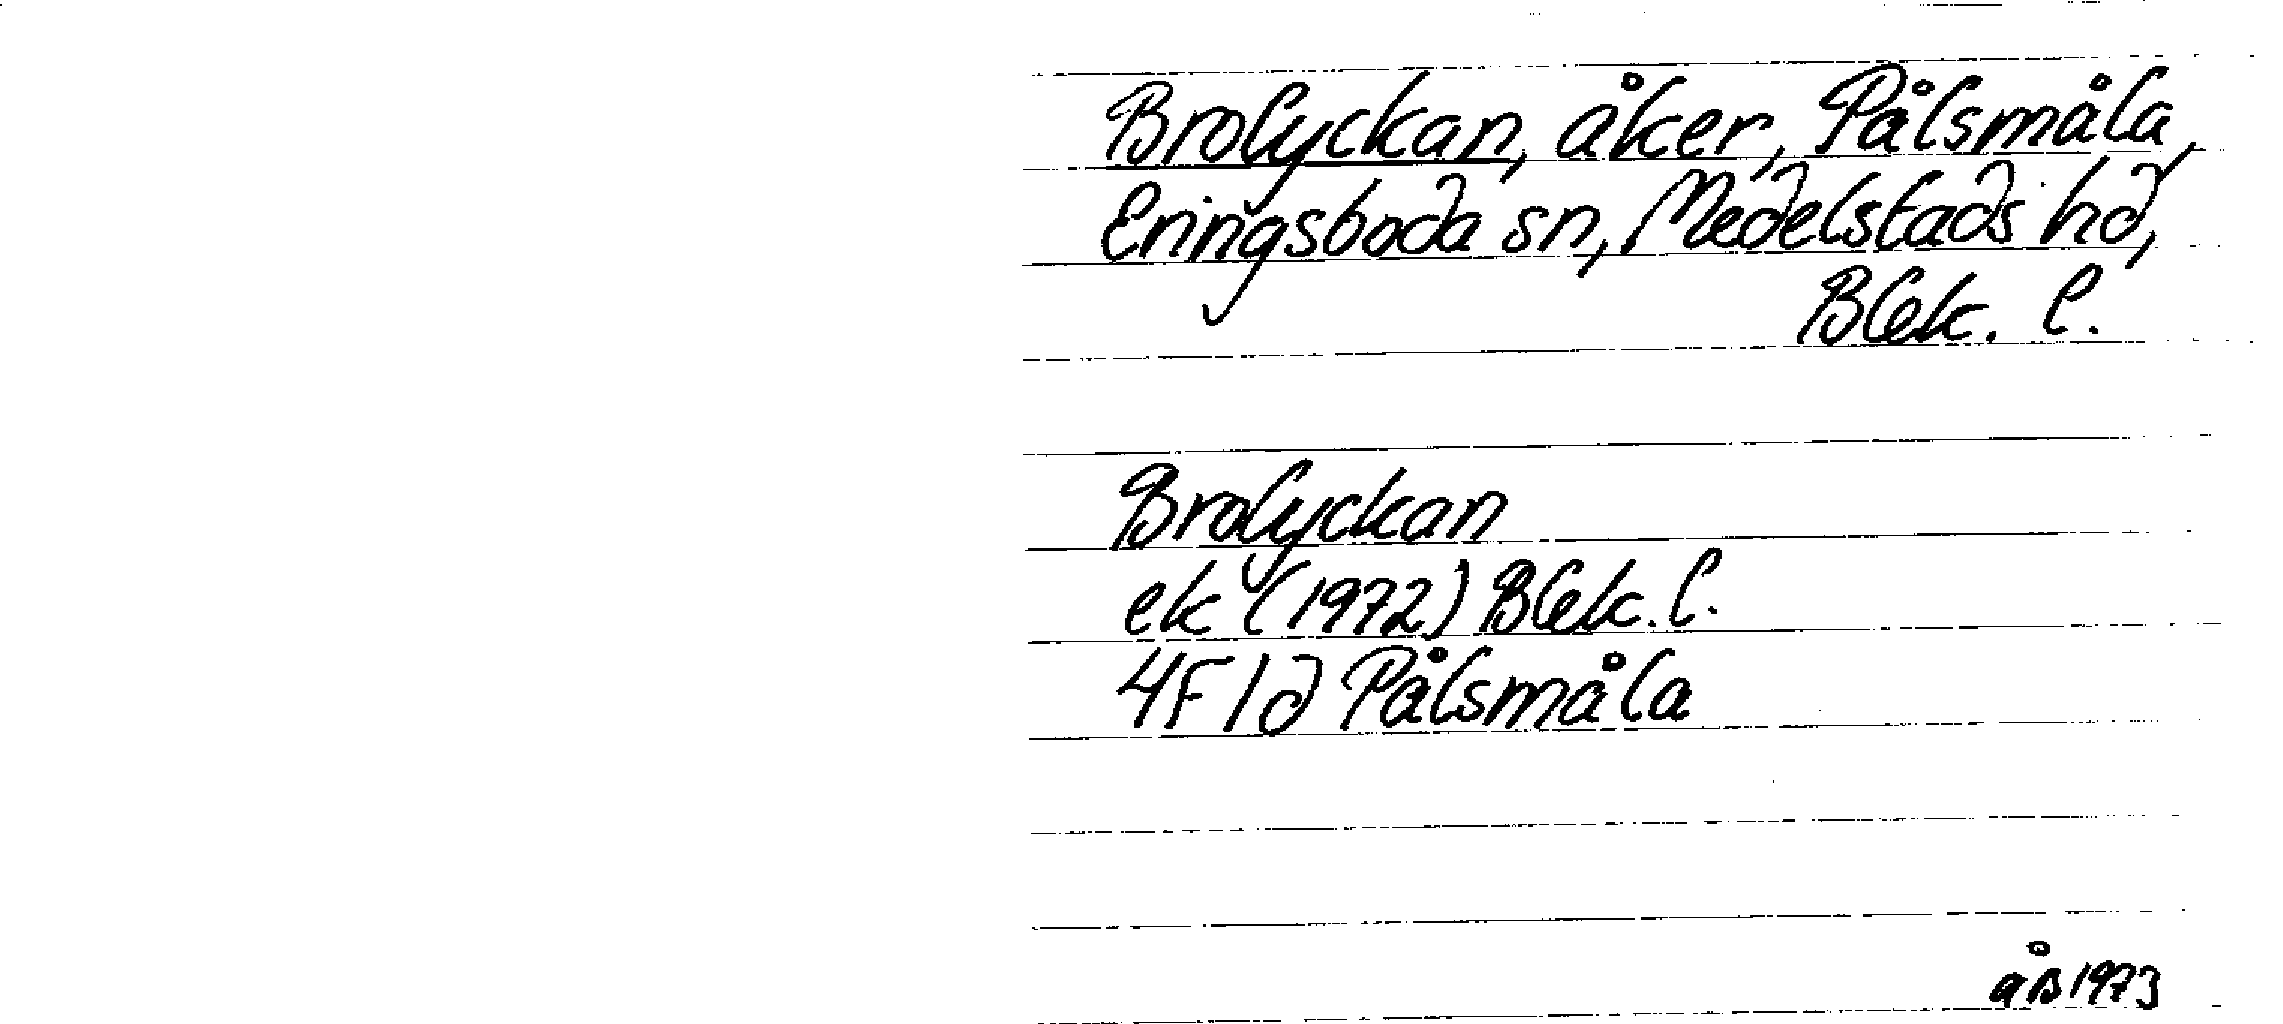 Brolyckan, åker, Pålsmåla,
Eringsboda sn, Medelstads hd,
Blek. l.
Brolyckan
ek (1972) Blek. l.
4F 1d Pålsmåla
åB 1973